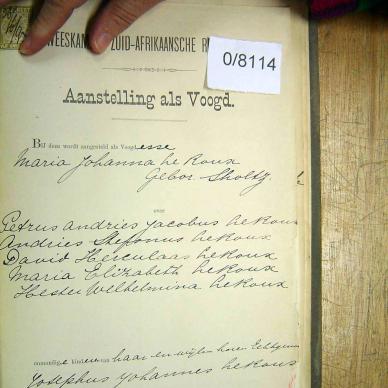 WEESKAM ZUID-AFRIKAANSCHE R
0/8114
Aanstelling als Voogd.
Bij deze wordt aangesteld als Voogdesse
Maria Johanna le Roux
Gebor. Sholtz.
over
Petrus Andries Jacobus le Roux
Andries Stefanus le Roux
David Herculaas le Roux
Maria Elizabeth le Roux
Hester Wilhelmina le Roux
onmondige kinderen van haar en wijlen haren Echtgenoo
Josephus Johannes le Roux